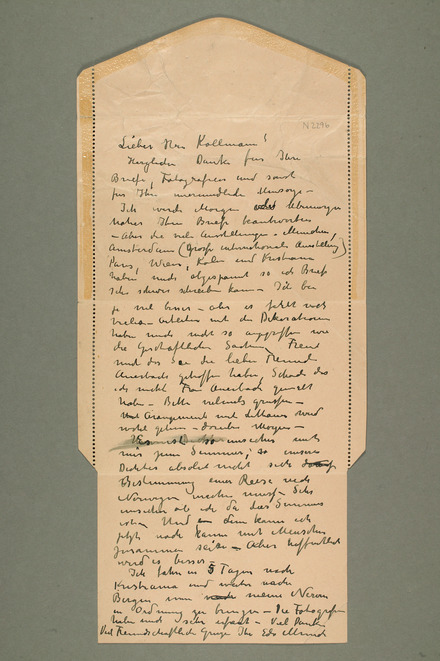 N 2296
Lieber Herr Kollmann!
Herzlichen Dank für Ihre
Briefe, Fotografieen und sonst
für Ihre unermüdliche Umsorge –
Ich werde Morgen oder übermorgen
näher Ihre Briefe beantworten
– Aber die viele Ausstellungen – München,
Amsterdam (Grosse internationale Ausstellung)
Paris, Wien, Köln und Kristiania
haben mich abgespannt so ich Briefe
sehr schwer schreiben kann – Ich bin
ja viel besser – aber es fehlt noch
vieles – Arbeiten mit den Dekorationen
haben mich nicht so angegriffen wie
die geschäftlichen Sachen, Freut
mich das Sie die lieben Freunde
Auerbach getroffen haben, Schade das
ich nicht Frau Auerbach gemalt
habe – Bitte vielmals grüssen –
Das Arangement mit Littauer wird
wohl gehen – darüber Morgen –
wünschen mich
mir zum Sommer; so unsere
Dichter absolut nicht sich
Bestimmung einer Reise nach
Norwegen machen muss – Sehr
unsicher ob ich da das Sommer
ist – Und dann kann ich
jetzt noch kaum mit Menschen
zusammen sein – Aber hoffentlich
wird es besser –
Ich fahre in 5 Tagen nach
Kristiania und weiter nach
Bergen um meine Nerven
in Ordnung zu bringen – Die Fotografien
haben mich sehr erfreut – Viel Danken
Viel Freundschaftliche Grüsse Ihr Edv Munch